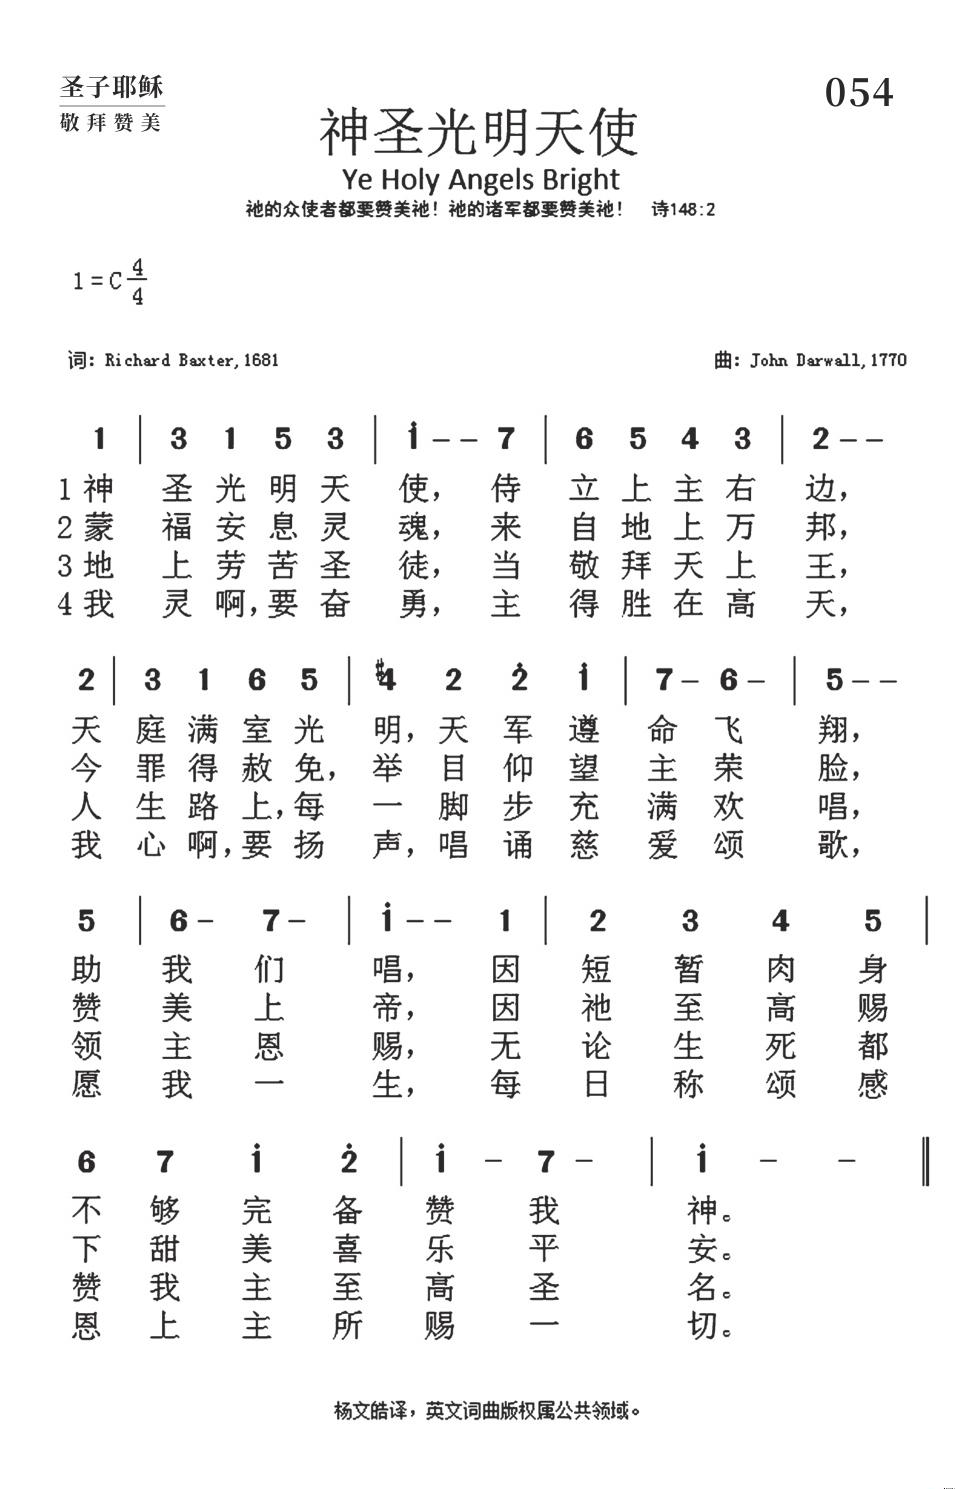 圣子耶稣
敬拜赞美
054
神圣光明天使
Ye Holy Angels Bright
祂的众使者都要赞美祂！祂的诸军都要赞美祂！ 诗148:2
1=C 4/4
词：Richard Baxter,1681
曲：John Darwall,1770
1 | 3 1 5 3 | i̇ - - 7 | 6 5 4 3 | 2 - -
1神 圣光明天 使，侍 立上主右 边，
2蒙 福安息灵 魂，来 自地上万 邦，
3地 上劳苦圣 徒，当 敬拜天上 王，
4我 灵啊，要奋 勇，主 得胜在高 天，
2 | 3 1 6 5 | #4 2 2̇ 1̇ | 7 - 6 - | 5 - -
天 庭满室光 明，天军遵 命飞 翔，
今 罪得赦免，举目仰望 主荣 脸，
人 生路上，每 一脚步充 满欢 唱，
我 心啊，要扬 声，唱诵慈 爱颂 歌，
5 | 6 - 7 - | 1̇ - - 1 | 2 3 4 5 |
助 我们 唱，因 短暂肉身
赞 美上 帝，因 祂至高赐
领 主恩 赐，无 论生死都
愿 我一 生，每 日称颂感
6 7 1̇ 2̇ | 1̇ - 7 - | 1̇ - - ‖
不够完备 赞我 神。
下甜美喜 乐平 安。
赞我主至 高圣 名。
恩上主所 赐一 切。
杨文皓译，英文词曲版权属公共领域。